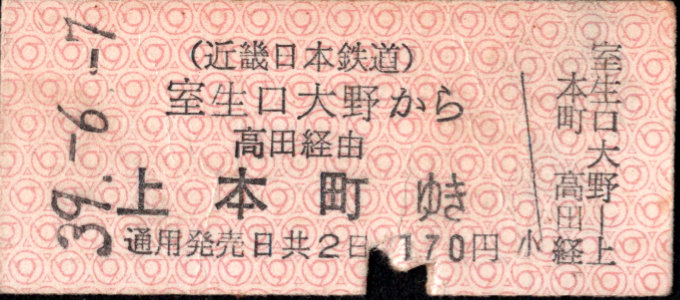 39.-6.-7
(近畿日本鉄道)
室生口大野から
高田経由
上本町ゆき
通用発売日共2日 170円 小
室生口大野—上
本町 高田経